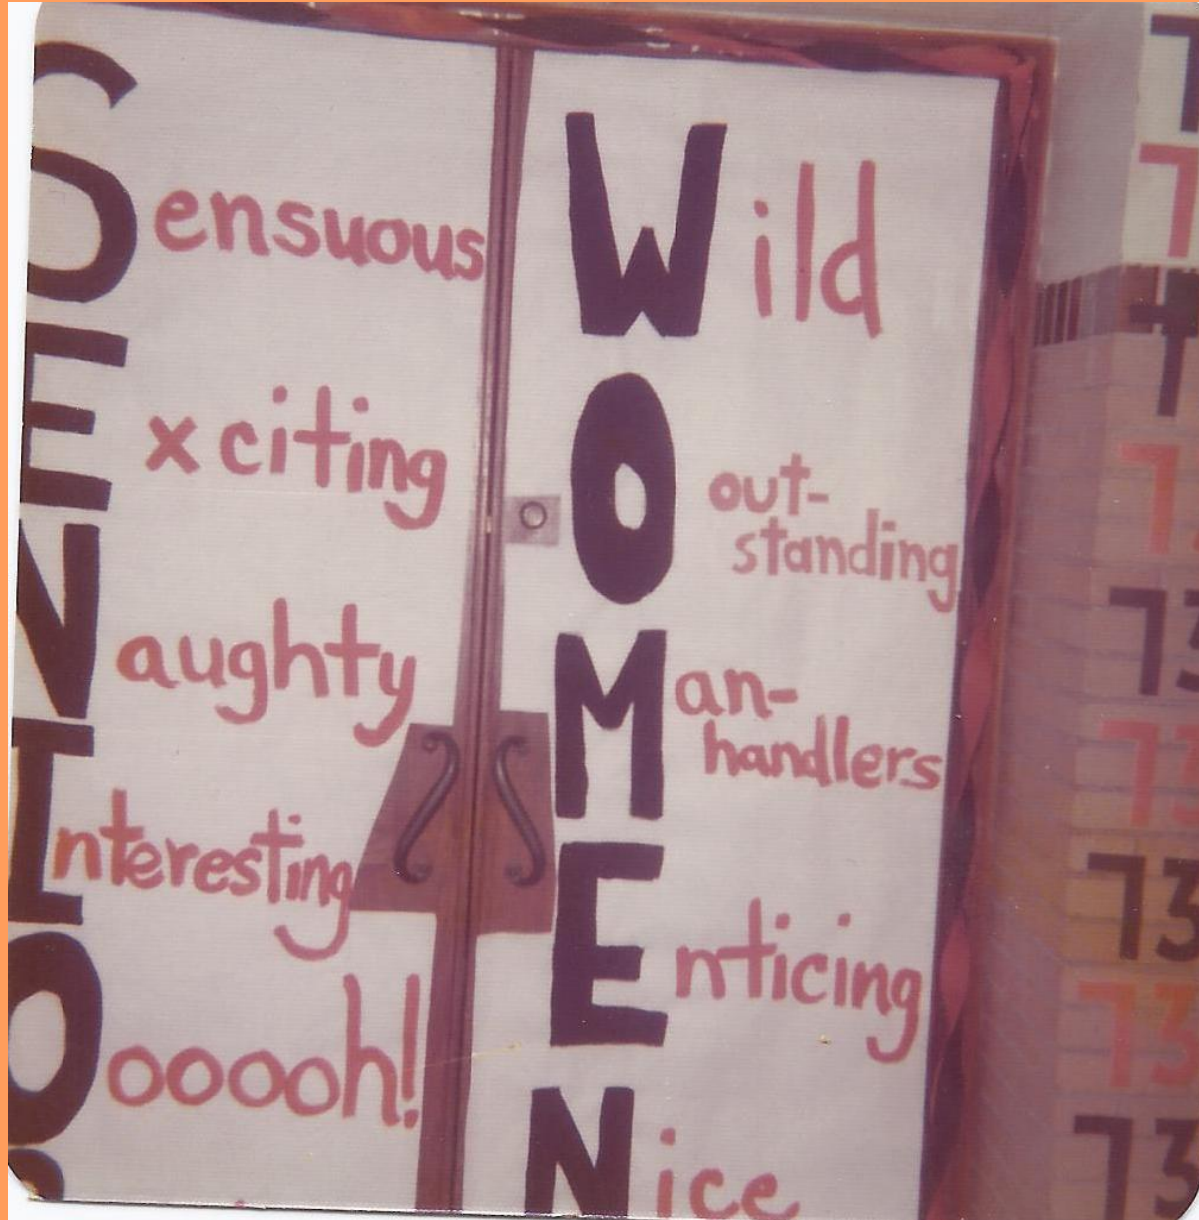 Sensuous
Exciting
Naughty
Interesting
Oooooh!
Wild
Out-
standing
Man-
handlers
Enticing
Nice
73
73
73
73
73